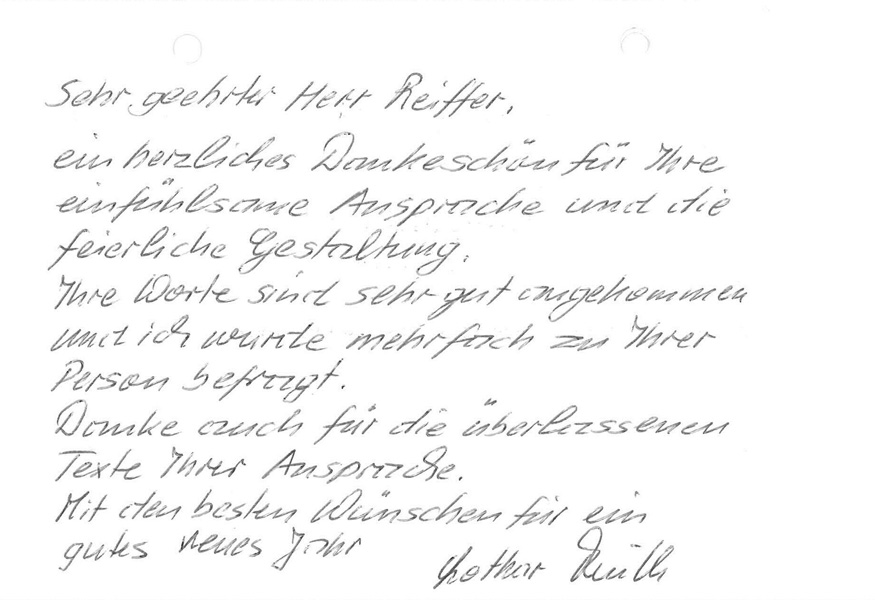 Sehr geehrter Herr Reiffer,
ein herzliches Dankeschön für Ihre
einfühlsame Ansprache und die
feierliche Gestaltung.
Ihre Worte sind sehr gut angekommen
und ich wurde mehrfach zu Ihrer
Person befragt.
Danke auch für die überlassenen
Texte Ihrer Ansprache.
Mit den besten Wünschen für ein
gutes neues Jahr
Lothar